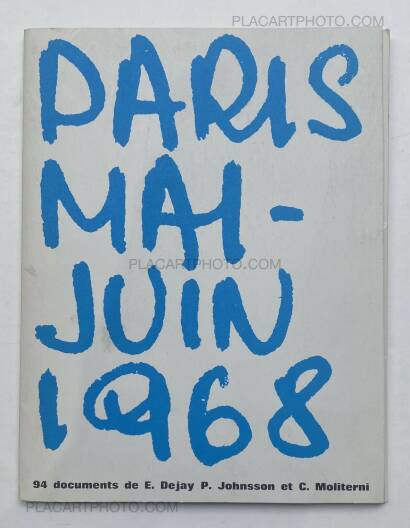 PLACARTPHOTO.COM
PLACARTPHOTO.COM
PARIS
MAI-
PLACARTPHOTO.COM
JUIN
1968
94 documents de E. Dejay P. Johnsson et C. Moliterni
PLACARTPHOTO.COM